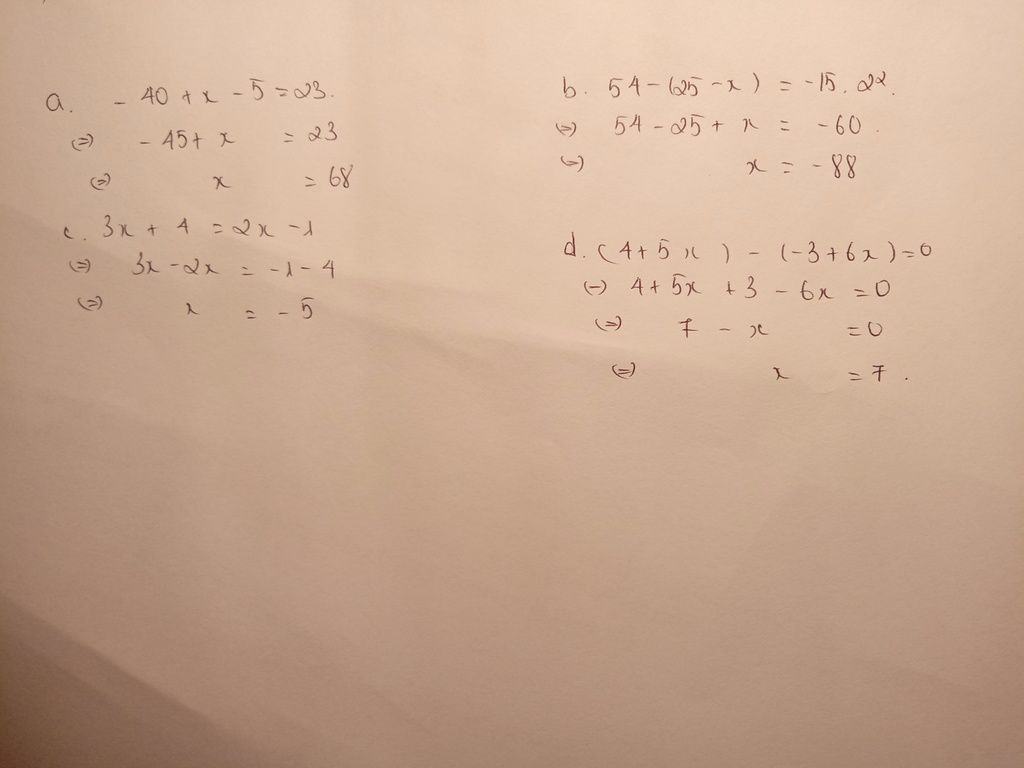 a. - 40 + x - 5 = 23.
⇔ - 45 + x = 23
⇔ x = 68
b. 54 - (25 - x) = -15. 2².
⇔ 54 - 25 + x = -60.
⇔ x = -88
c. 3x + 4 = 2x - 1
⇔ 3x - 2x = -1 - 4
⇔ x = -5
d. (4 + 5x) - (-3 + 6x) = 0
⇔ 4 + 5x + 3 - 6x = 0
⇔ 7 - x = 0
⇔ x = 7.